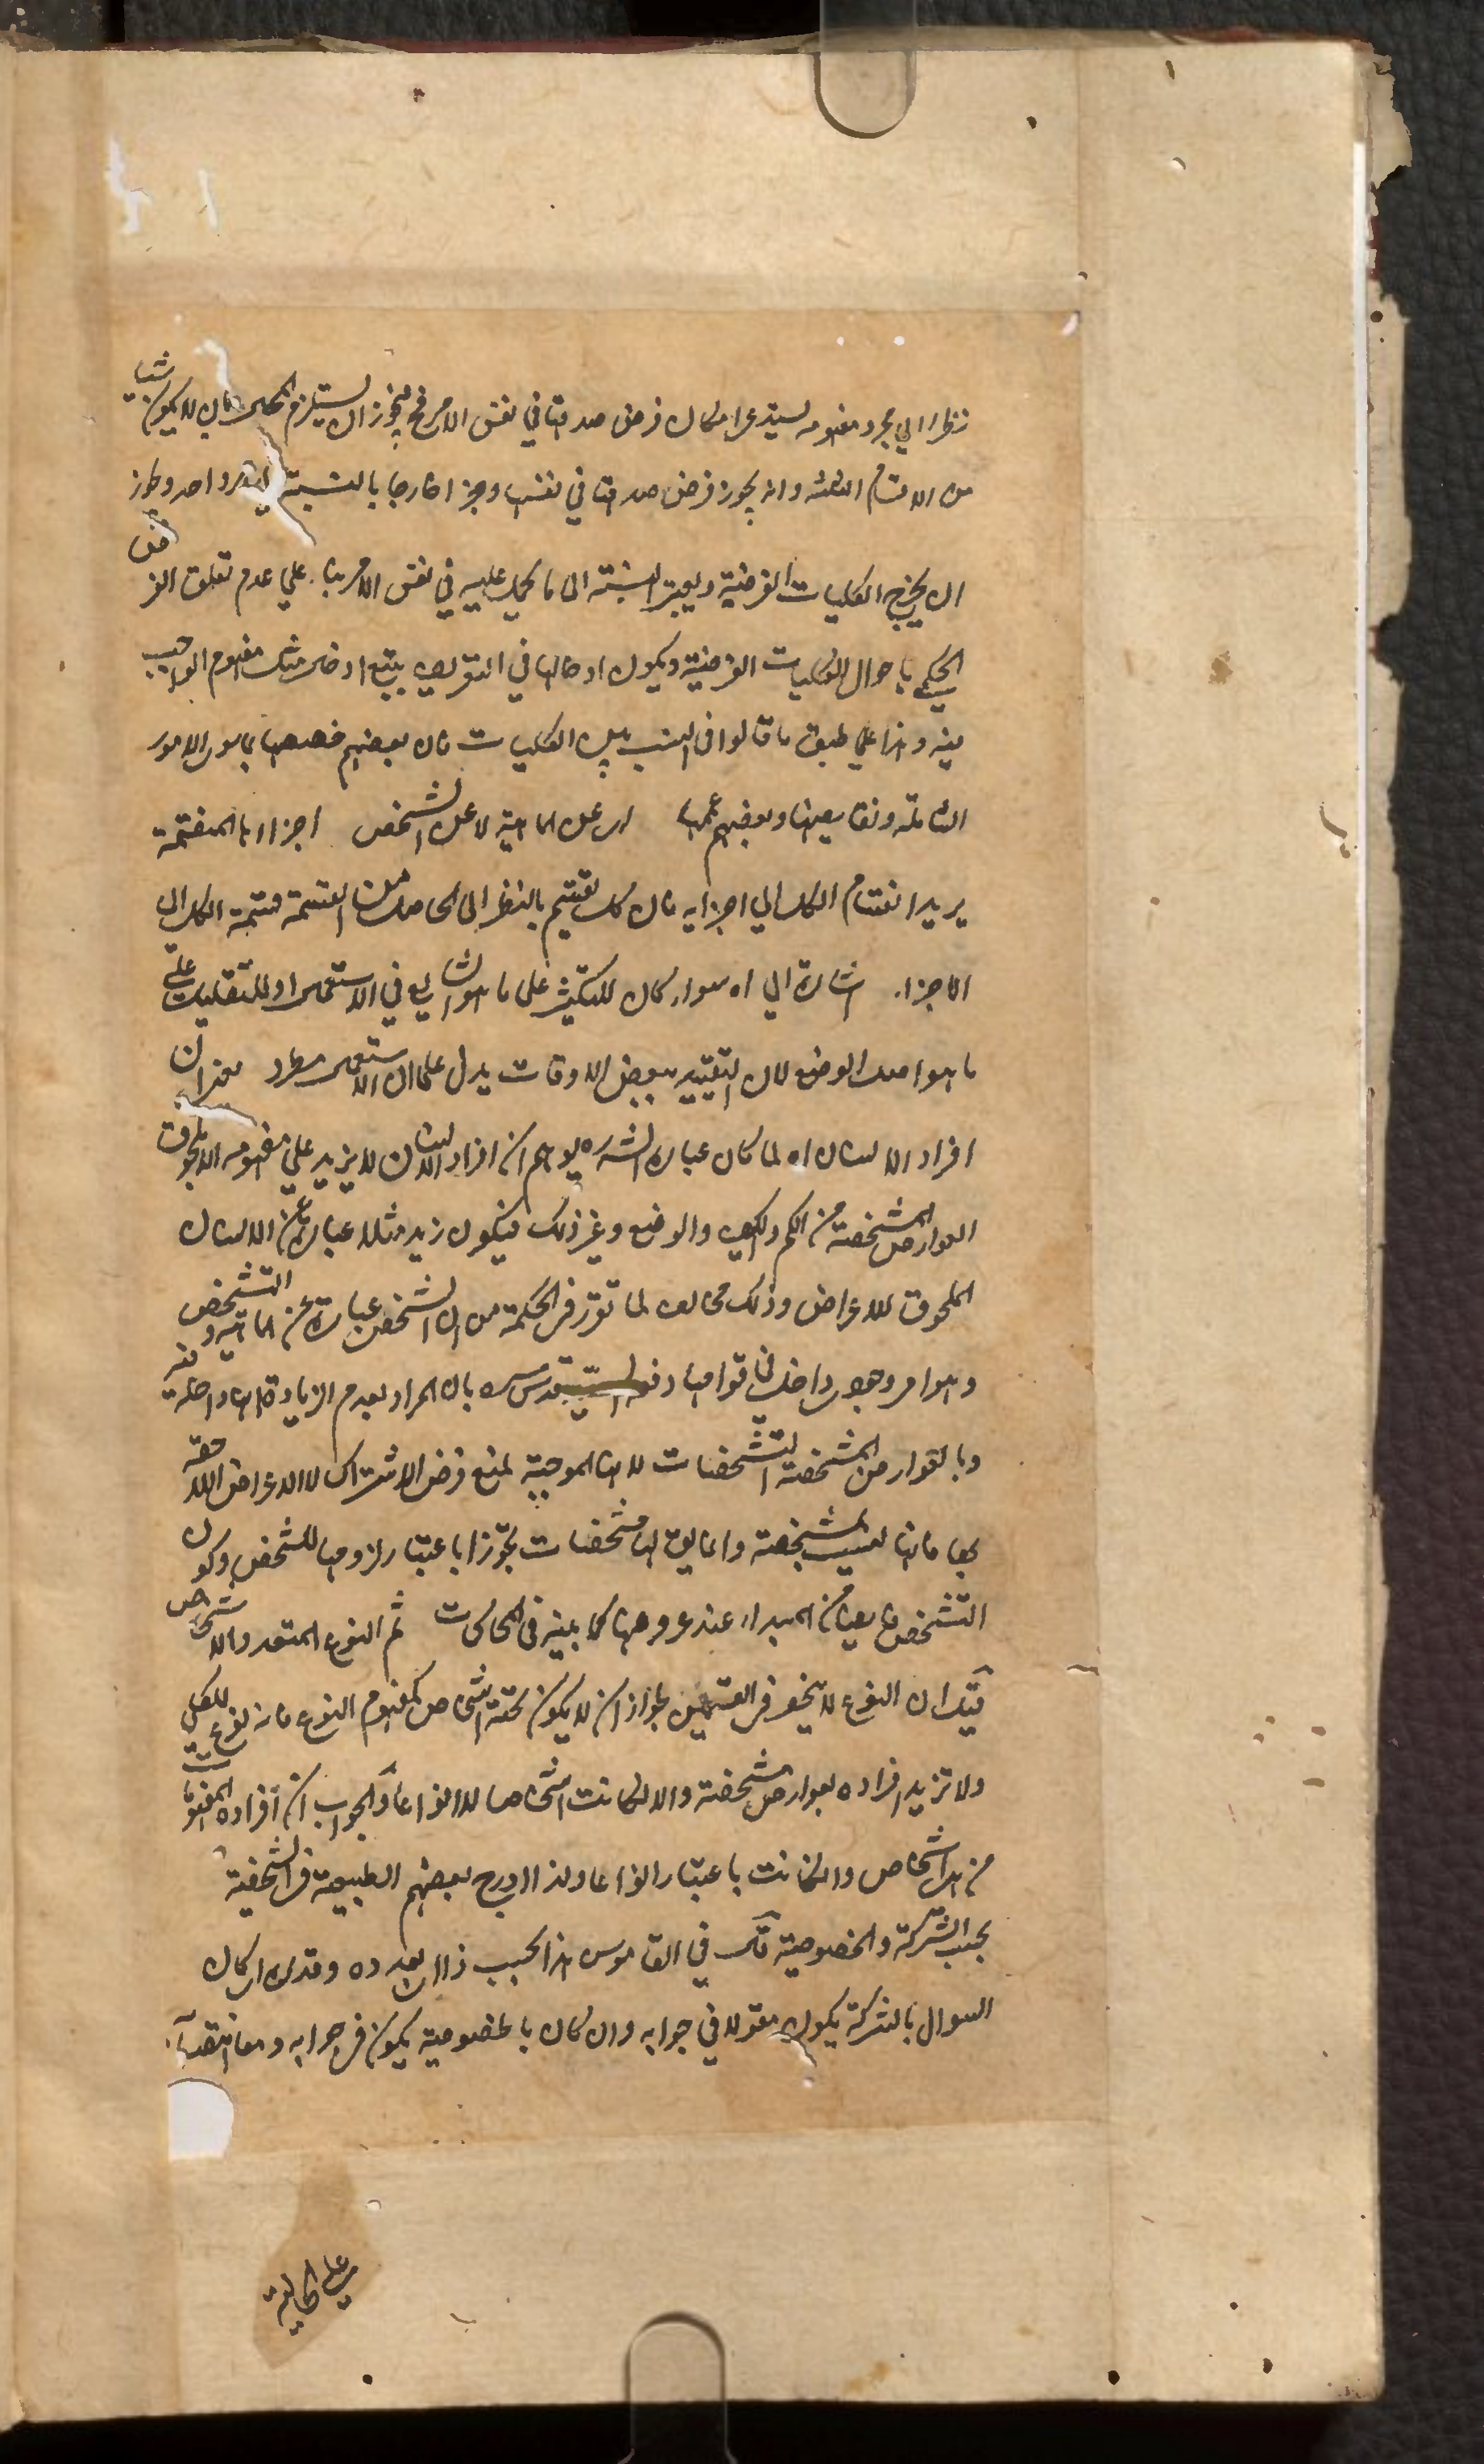 نظرا الي مجرد مفهومه لا يستدعي امكان فرض صدقها في نفس الامر فيجوز ان يستلزم المحال بان لا يكون شيئا
من الاقسام الثلثة وانه يجوز فرض صدقها في نفسها وجزا خارجا بالنسبة الي فرد واحد وجاز
ان يخرج الكليات الفرضية ويعتبر النسبة الى ما يحمل عليه في نفس الامر بناء علي عدم تعلق الغرض
الحكمي باحوال الكليات الفرضية ويكون ادخالها في التعريف بتبع ادخال مثل مفهوم الواجب
فيه وهذا علي طبق ما قالوا في النسب بين الكليات فان بعضهم خصصها بما سوى الامور
الشاملة ونقايضها وبعضهم عممها اى على الماهية لا على الشخص اجزاءها المنقسمة
يريد انقسام الكل الي اجزايه فان كل تقسيم بالنظر الى الحاصل من القسمة قسمة الكل الى
الاجزاء اشارة الي انه سواء كان للتكثير على ما هو الشايع في الاستعمال او للتقليل على
ما هو اصل الوضع لان التقييد ببعض الاوقات يدل على ان الاستعمال مطرد معنى ان
افراد الانسان اه لما كان عبارة الشرح يوهم ان افراد الانسان لا يزيد علي مفهومه الا بلحوق
العوارض المشخصة من الكم والكيف والوضع وغير ذلك فيكون زيد مثلا عبارة عن الانسان
الملحوق للاعراض وذلك مخالف لما تقرر في الحكمة من ان الشخص عبارة عن الماهية والتشخص
وهو امر وجودى داخل في قوامها دفعه السيد قدس سره بان المراد بعدم الزيادة انها داخلة فيه
وبالعوارض المشخصة التشخصات لانها الموجبة لمنع فرض الاشتراك لا الاعراض اللاحقة
بها فانها ليست بمشخصة وانما يق لها مشخصات تجوزا باعتبار لزومها للشخص وكون
التشخص فايضا من المبداء عند عروضها كما بينه في المحاكمات ثم النوع المتعدد الاشخاص
قيل ان النوع لا ينحصر في القسمين لجواز ان لا يكون تحته اشخاص كمفهوم النوع فانه نوع للكليات
ولا تزيد افراده بعوارض مشخصة والا لكانت اشخاصا لا انواعا والجواب ان افراده المفهومات
من اشخاص وان كانت باعتبار انواعا ولذا ادرج بعضهم الطبيعية في الشخصية
بحسب الشركة والخصوصية قال في القاموس هذا بحسب ذا اى بعدده وقدره اى كان
السوال بالشركة يكون مقولا في جوابه وان كان بالخصوصية يكون في جوابه ومعا انقضاء